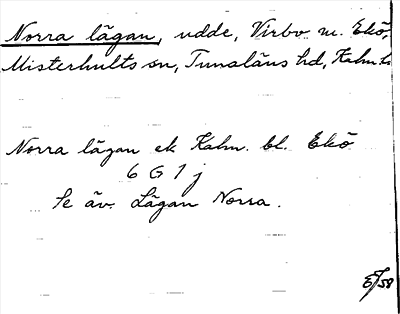 Norra lägan, udde, Virbo m. Ekö,
Misterhults sn, Tunaläns hd, Kalm. l.
Norra lägan ek Kalm. bl. Ekö
6 G 1 j
Se äv. Lägan Norra.
E/58